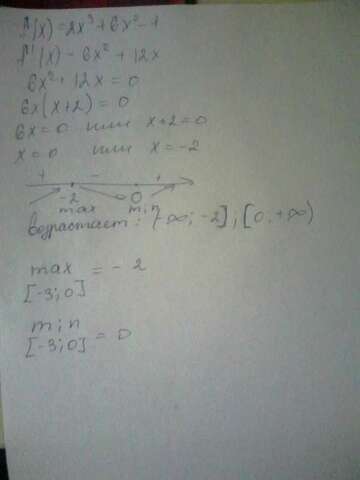 f(x)=2x³+6x²-1
f'(x)-6x²+12x
6x²+12x=0
6x(x+2)=0
6x=0 или x+2=0
x=0 или x=-2
+ - +
-2 0
max min
возрастает: (-∞; -2]; [0, +∞)
max = -2
[-3;0]
min = 0
[-3;0]